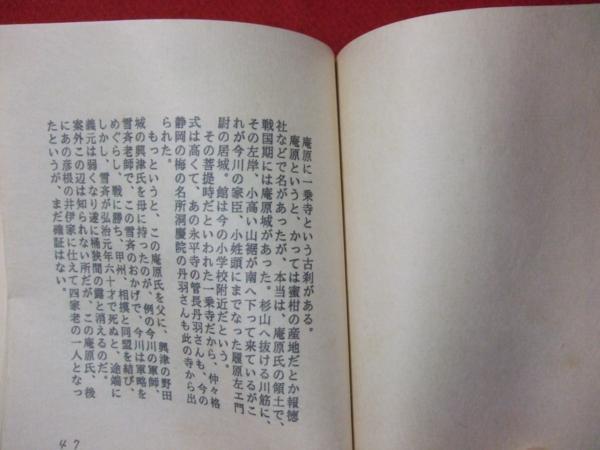 庵原に一乗寺という古刹がある。
庵原というと、かっては蜜柑の産地だとか報徳
社などで名があったが、本当は、庵原氏の領土で、
戦国期には庵原城があった。杉山へ抜ける川筋に、
その左岸、小高い山裾が南へ下って来ているがこ
れが今川の家臣、小姓頭にまでなった履原左エ門
尉の居城。館は今の小学校附近だという。
その菩提時だといわれた一乗寺だから、仲々格
式は高くて、あの永平寺の管長丹羽さんも、今の
静岡の梅の名所洞慶院の丹羽さんも此の寺から出
られた。
もっというと、この庵原氏を父に、興津の野田
城の興津氏を母に持ったのが、例の今川の軍師、
雪斉老師で、この雪斉のおかげで、今川は軍略を
めぐらし、戦に勝ち、甲州、相摸と同盟を結び、
しかし、雪斉が弘治元年六十才で死ぬと、途端に
義元は弱くなり遂に桶狭間の露と消えるのだ。
案外この辺は知られない所だが、この庵原氏、後
にあの彦根の井伊家に仕えて四家老の一人となっ
たというが、まだ確証はない。
47